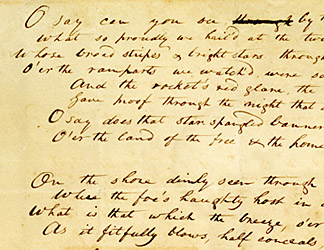 O say can you see ~~through~~ by
What so proudly we hail'd at the tw
Whose broad stripes & bright stars through
O'er the ramparts we watch'd, were so
And the rocket's red glare, the
Gave proof through the night that
O say does that star spangled banner
O'er the land of the free & the home
On the shore dimly seen through
Where the foe's haughty host in d
What is that which the breeze, o'er
As it fitfully blows, half conceals